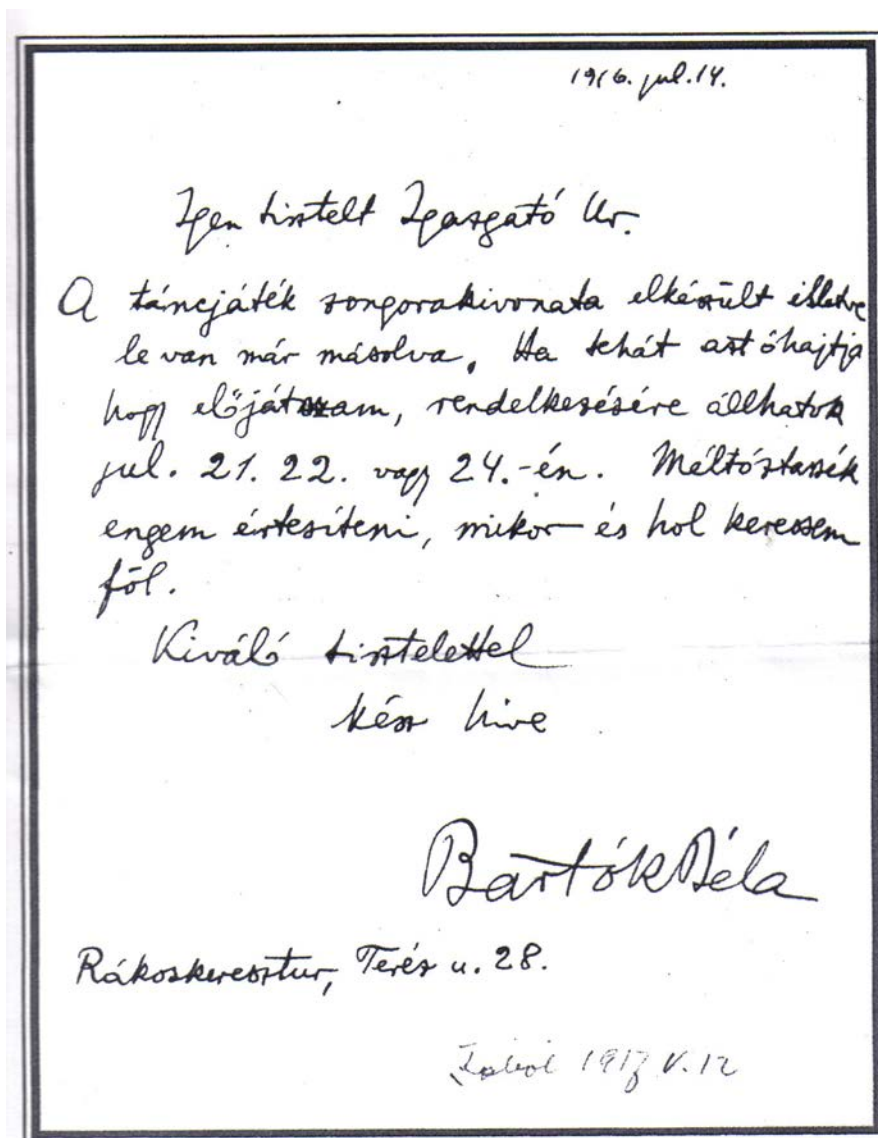 1916. jul. 14.
Igen tisztelt Igazgató Ur.
A táncjáték zongorakivonata elkészült illetve
le van már másolva. Ha tehát azt óhajtja
hogy előjátszam, rendelkezésére állhatok
jul. 21. 22. vagy 24.-én. Méltóztassék
engem értesíteni, mikor és hol keressem
föl.
Kiváló tisztelettel
kész hive
Bartók Béla
Rákoskeresztur, Teréz u. 28.
V. 12